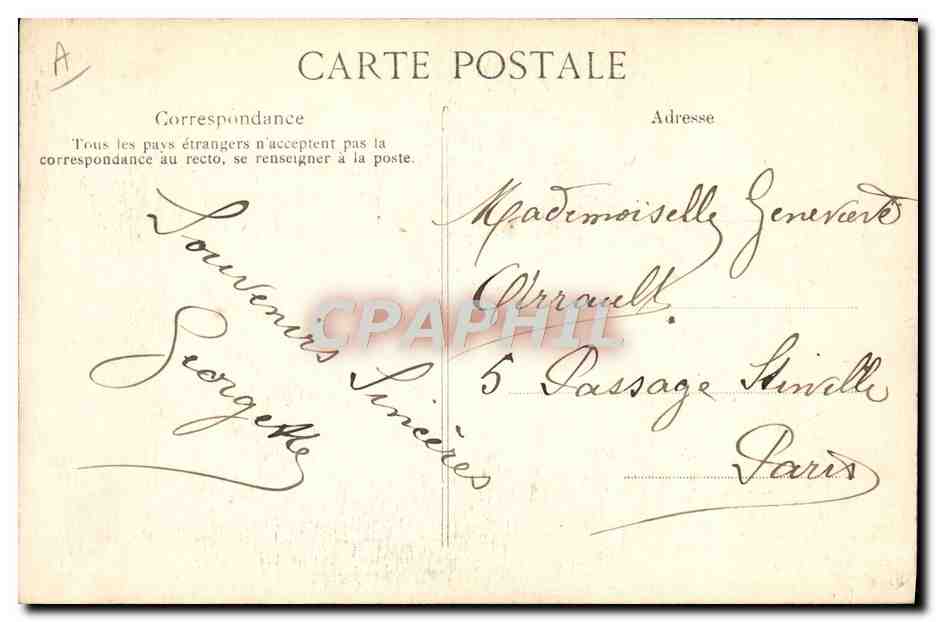 A
CARTE POSTALE
Correspondance
Tous les pays étrangers n'acceptent pas la
correspondance au recto, se renseigner à la poste.
Souvenirs Sincères
Georgette
Adresse
Mademoiselle Geneviève
5 Passage Stinville
Paris
CPAPHIL